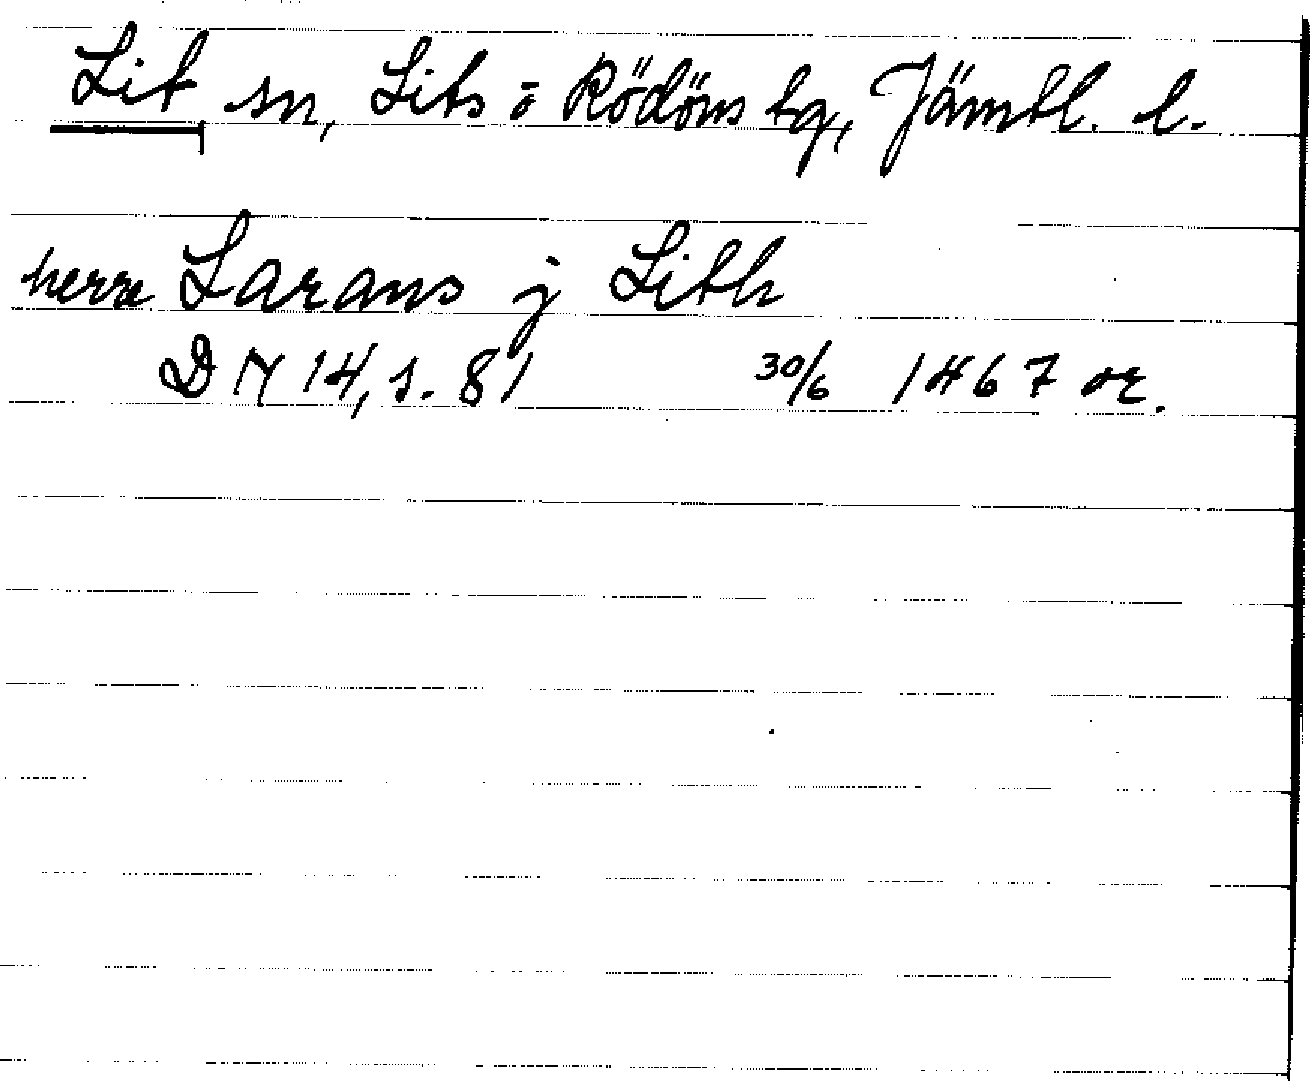 Lit sn, Lits o Rödöns tg, Jämtl. l.
herre Larans j Lith
DN 14, s. 81 30/6 1467 or.